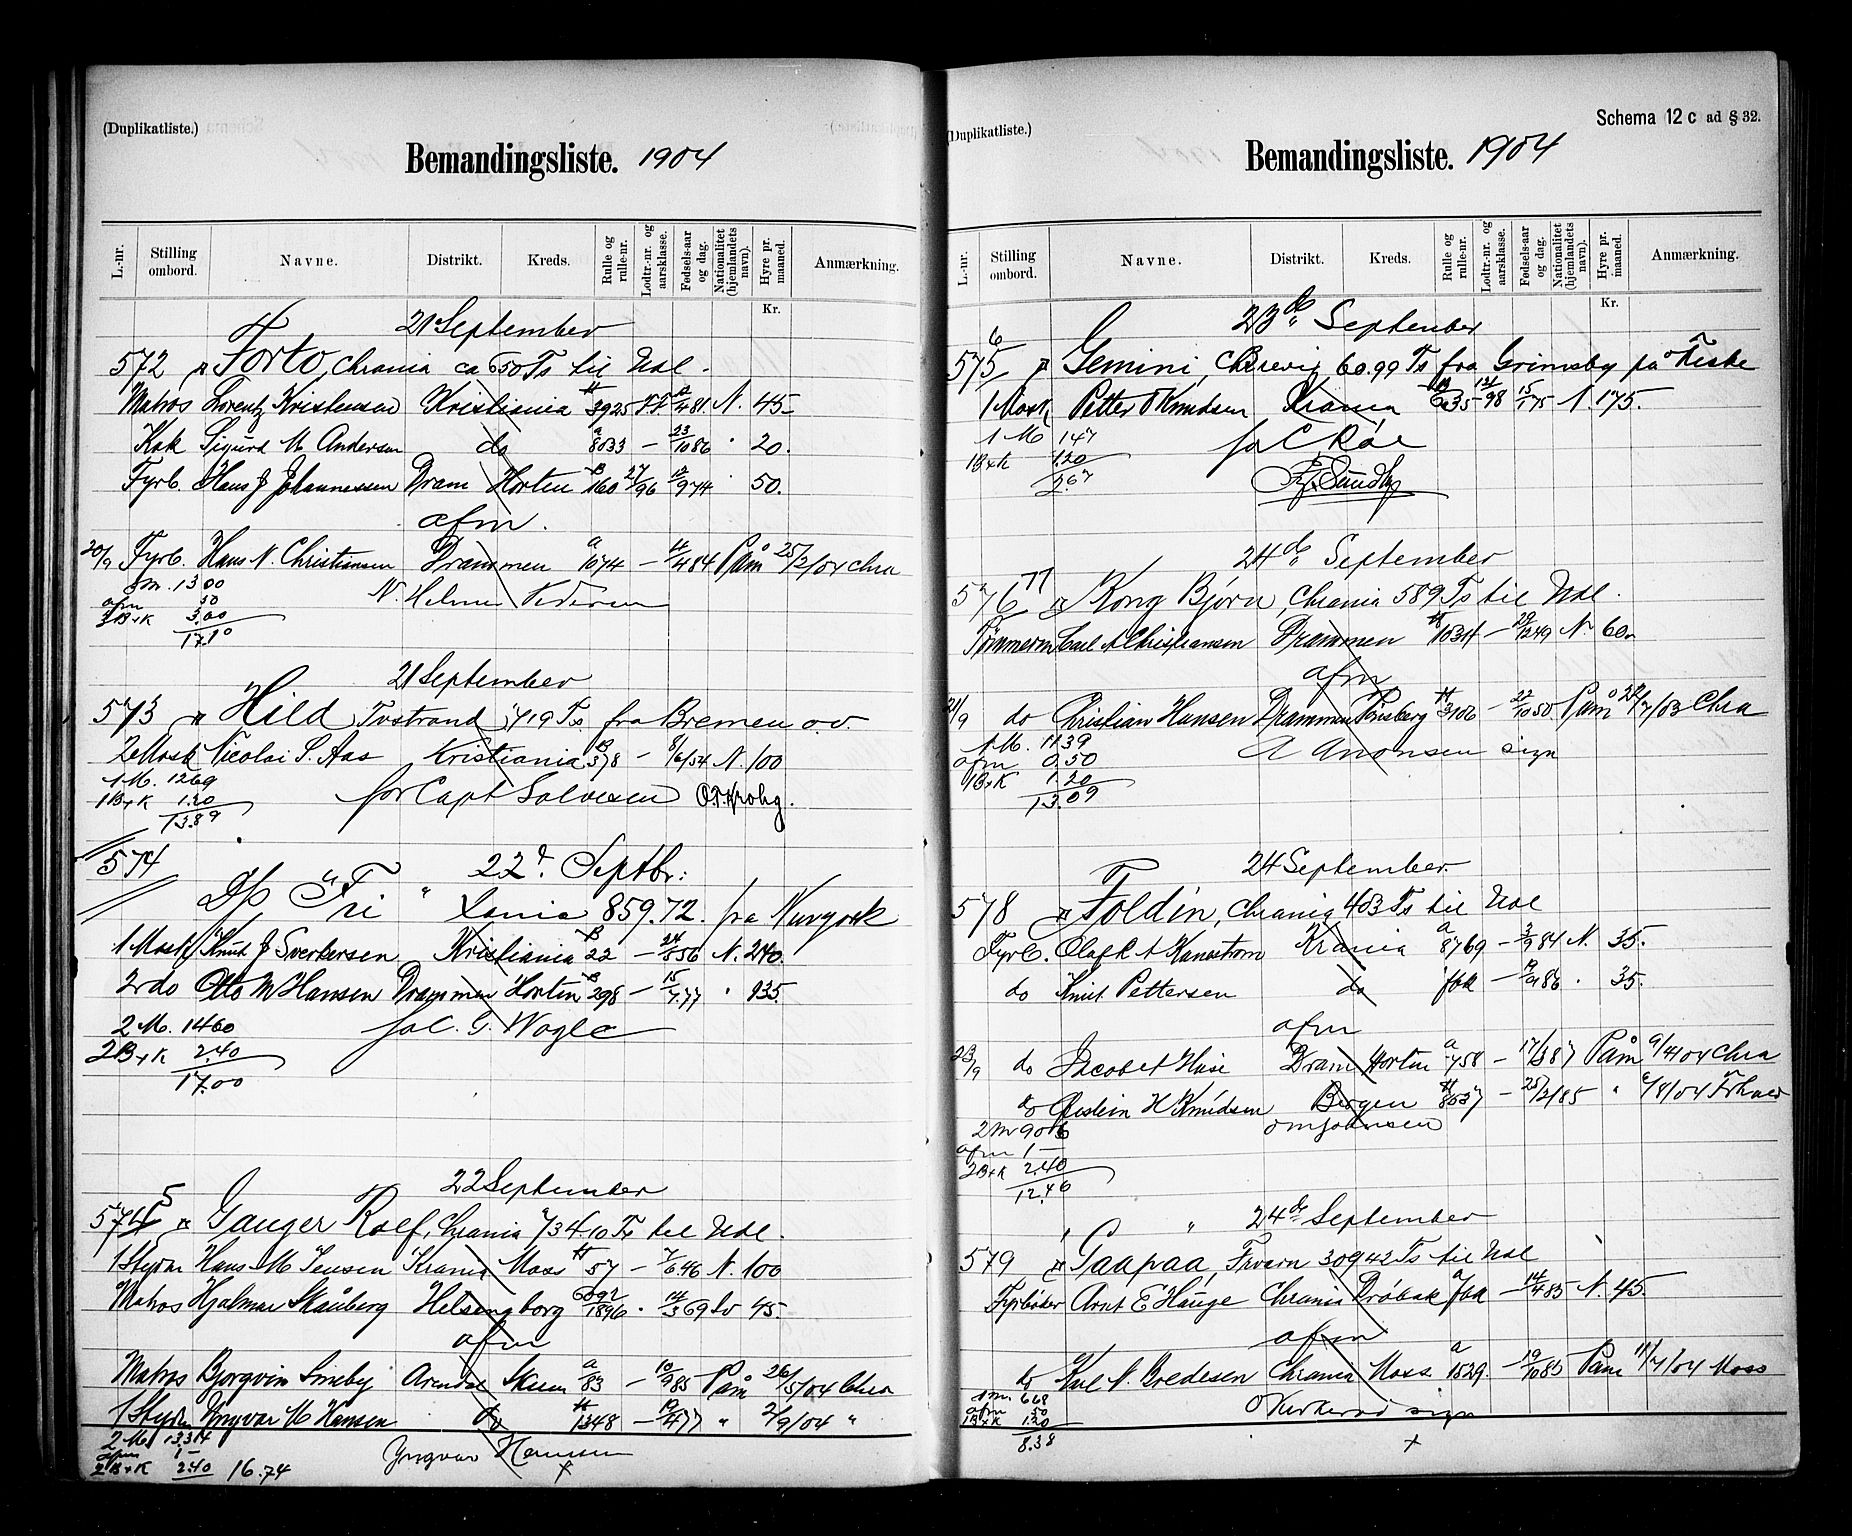 (Duplikatliste.)
Bemandingsliste. 1904
L.-nr.
Stilling ombord.
Navne.
Distrikt.
Kreds.
Rulle og rulle-nr.
Lodtr.-nr. og aarsklasse.
Fødsels-aar og dag.
Nationalitet (hjemlandets navn).
Hyre pr. maaned.
Anmærkning.
Kr.
21 September
572 Torto, Chrania ca 650 Ts til Udl.
Matros Lorentz Kristensen Kristiania 3925 N. 45
Kok Sigurd M Andersen do a 8033 — 23/1086 20.
Fyrb. Hans J Johannessen Dram Horten B 160 27/96 12/974 50.
afm.
20/9 Fyrb. Hans N. Christiansen Drammen a 1074 — 484 Påm 25/2/04 Chra
M. 1300
afm 50
3B+K 3.00
17.10
N. Helmer Pedersen
21 September
573 Hild Tvstrand 719 Ts fra Bremen o.v.
2 Mask Nicolai S. Aas Kristiania B 378 — 8/6/54 N. 100
1 M. 1269
1B+K 1.20
13.89
for Capt Salvesen O.T. Krohg.
574
22d Septbr:
D/S "Fri" Xania 859.72. fra Newyork
1 Mask Knut J Sverbersen Kristiania B 22 — 24/856 N. 240.
2 do Otto M Hansen Drammen Horten B 298 — 15/7.77 135.
2 M. 1460
2B+K 2.40
17.00
for C. G. Wogle
22 September
5745 Ganger Rolf, Chrania 734.10 Ts til Udl.
1 Styrm Hans M Jensen Krania Moss 57 — 7/646 N. 100
Matros Hjalmar Skåberg Helsingborg 6092/1896 . 14/369 Sv 45.
afm
Matros Bjorgvin Smeby Arendal Skien a 83 — 10/985 Påm 26/5/04 Chra
1 Styrm Yngvar M Hansen do 1348 — 19/477 " 2/9/04 "
2 M. 1334
afm 1—
2B+K 2.40 16.74
Yngvar Hansen
Schema 12 c ad § 32.
(Duplikatliste.)
Bemandingsliste. 1904
L.-nr.
Stilling ombord.
Navne.
Distrikt.
Kreds.
Rulle og rulle-nr.
Lodtr.-nr. og aarsklasse.
Fødsels-aar og dag.
Nationalitet (hjemlandets navn).
Hyre pr. maaned.
Anmærkning.
Kr.
23de September
5756 Gemini, Brevig 60.99 Ts fra Grimsby på Fiske
1 Mask Petter O Knudsen Krania 635 98 15/175 N. 175.
1 M 147
1B+K 1.20
2.67
for C Röe
Fr. Sundby
24de September
57677 Kong Bjørn, Chrania 589 Ts til Udl.
Tømmerm Carl A Christiansen Drammen 1034 — 29/1249 N. 60
afm
21/9 do Christian Hansen Drammen Tønsberg 3106 — 22/1050 Påm 24/7/03 Chra
1 M. 11.39
afm 0.50
1B+K 1.20
13.09
A Anonsen sign
24 September.
578 Foldin, Chrania 403 Ts til Udl
Fyrb. Olaf K A Kanstrom Krania a 8769 — 3/984 N. 35.
do Knut Pettersen do fok — 19/986 . 35.
afm
23/9 do Jacob A Huse Dram Horten a 758 — 17/387 Påm 9/4/04 Chra
do Øistein H Knudsen Bergen 8037 — 25/2/85 " 6/8/04 Frhald
2 M 906
afm 1—
2B+K 2.40
12.46
OM Johnsen
24de September
579 Gaapaa, Frvarn 309 42 Ts til Udl
Fyrbøder Arnt E Hauge Chrania Drøbak fok — 14/485 N. 45.
afm
do Karl N. Bredesen Chrania Moss a 1529. — 19/1085 Påm 11/7/04 Moss
1 M. 668
afm 50
1B+K 1.20
8.38
O Kirkerød sign